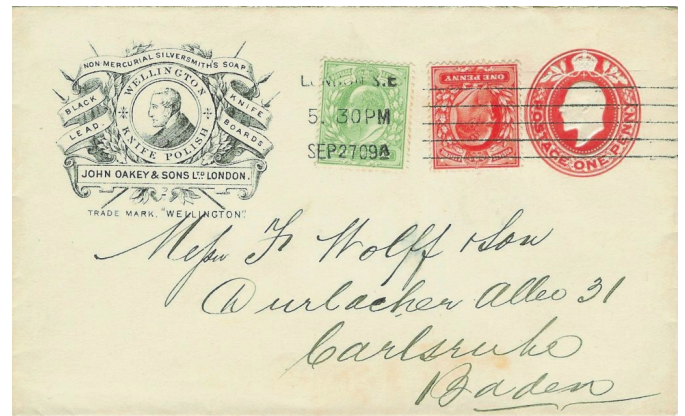 NON MERCURIAL SILVERSMITH'S SOAP.
WELLINGTON
KNIFE POLISH
BLACK
LEAD.
KNIFE
BOARDS
JOHN OAKEY & SONS LTD LONDON.
TRADE MARK, "WELLINGTON".
LONDON S.E
5. 30 PM
SEP 27 09
ONE PENNY
POSTAGE·ONE·PENNY
Messrs F Wolff & Son
Durlacher Allee 31
Carlsruhe
Baden